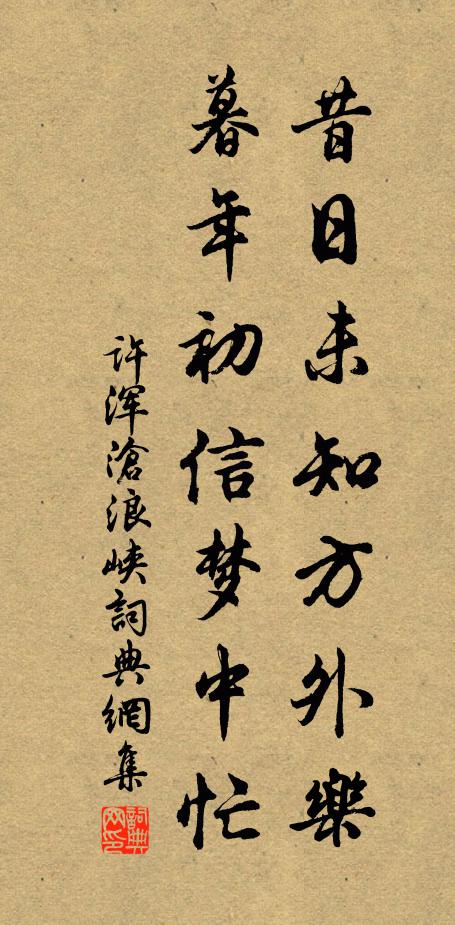 昔日未知方外樂
暮年初信梦中忙
许浑滄浪峡詞典網集
詞典网印